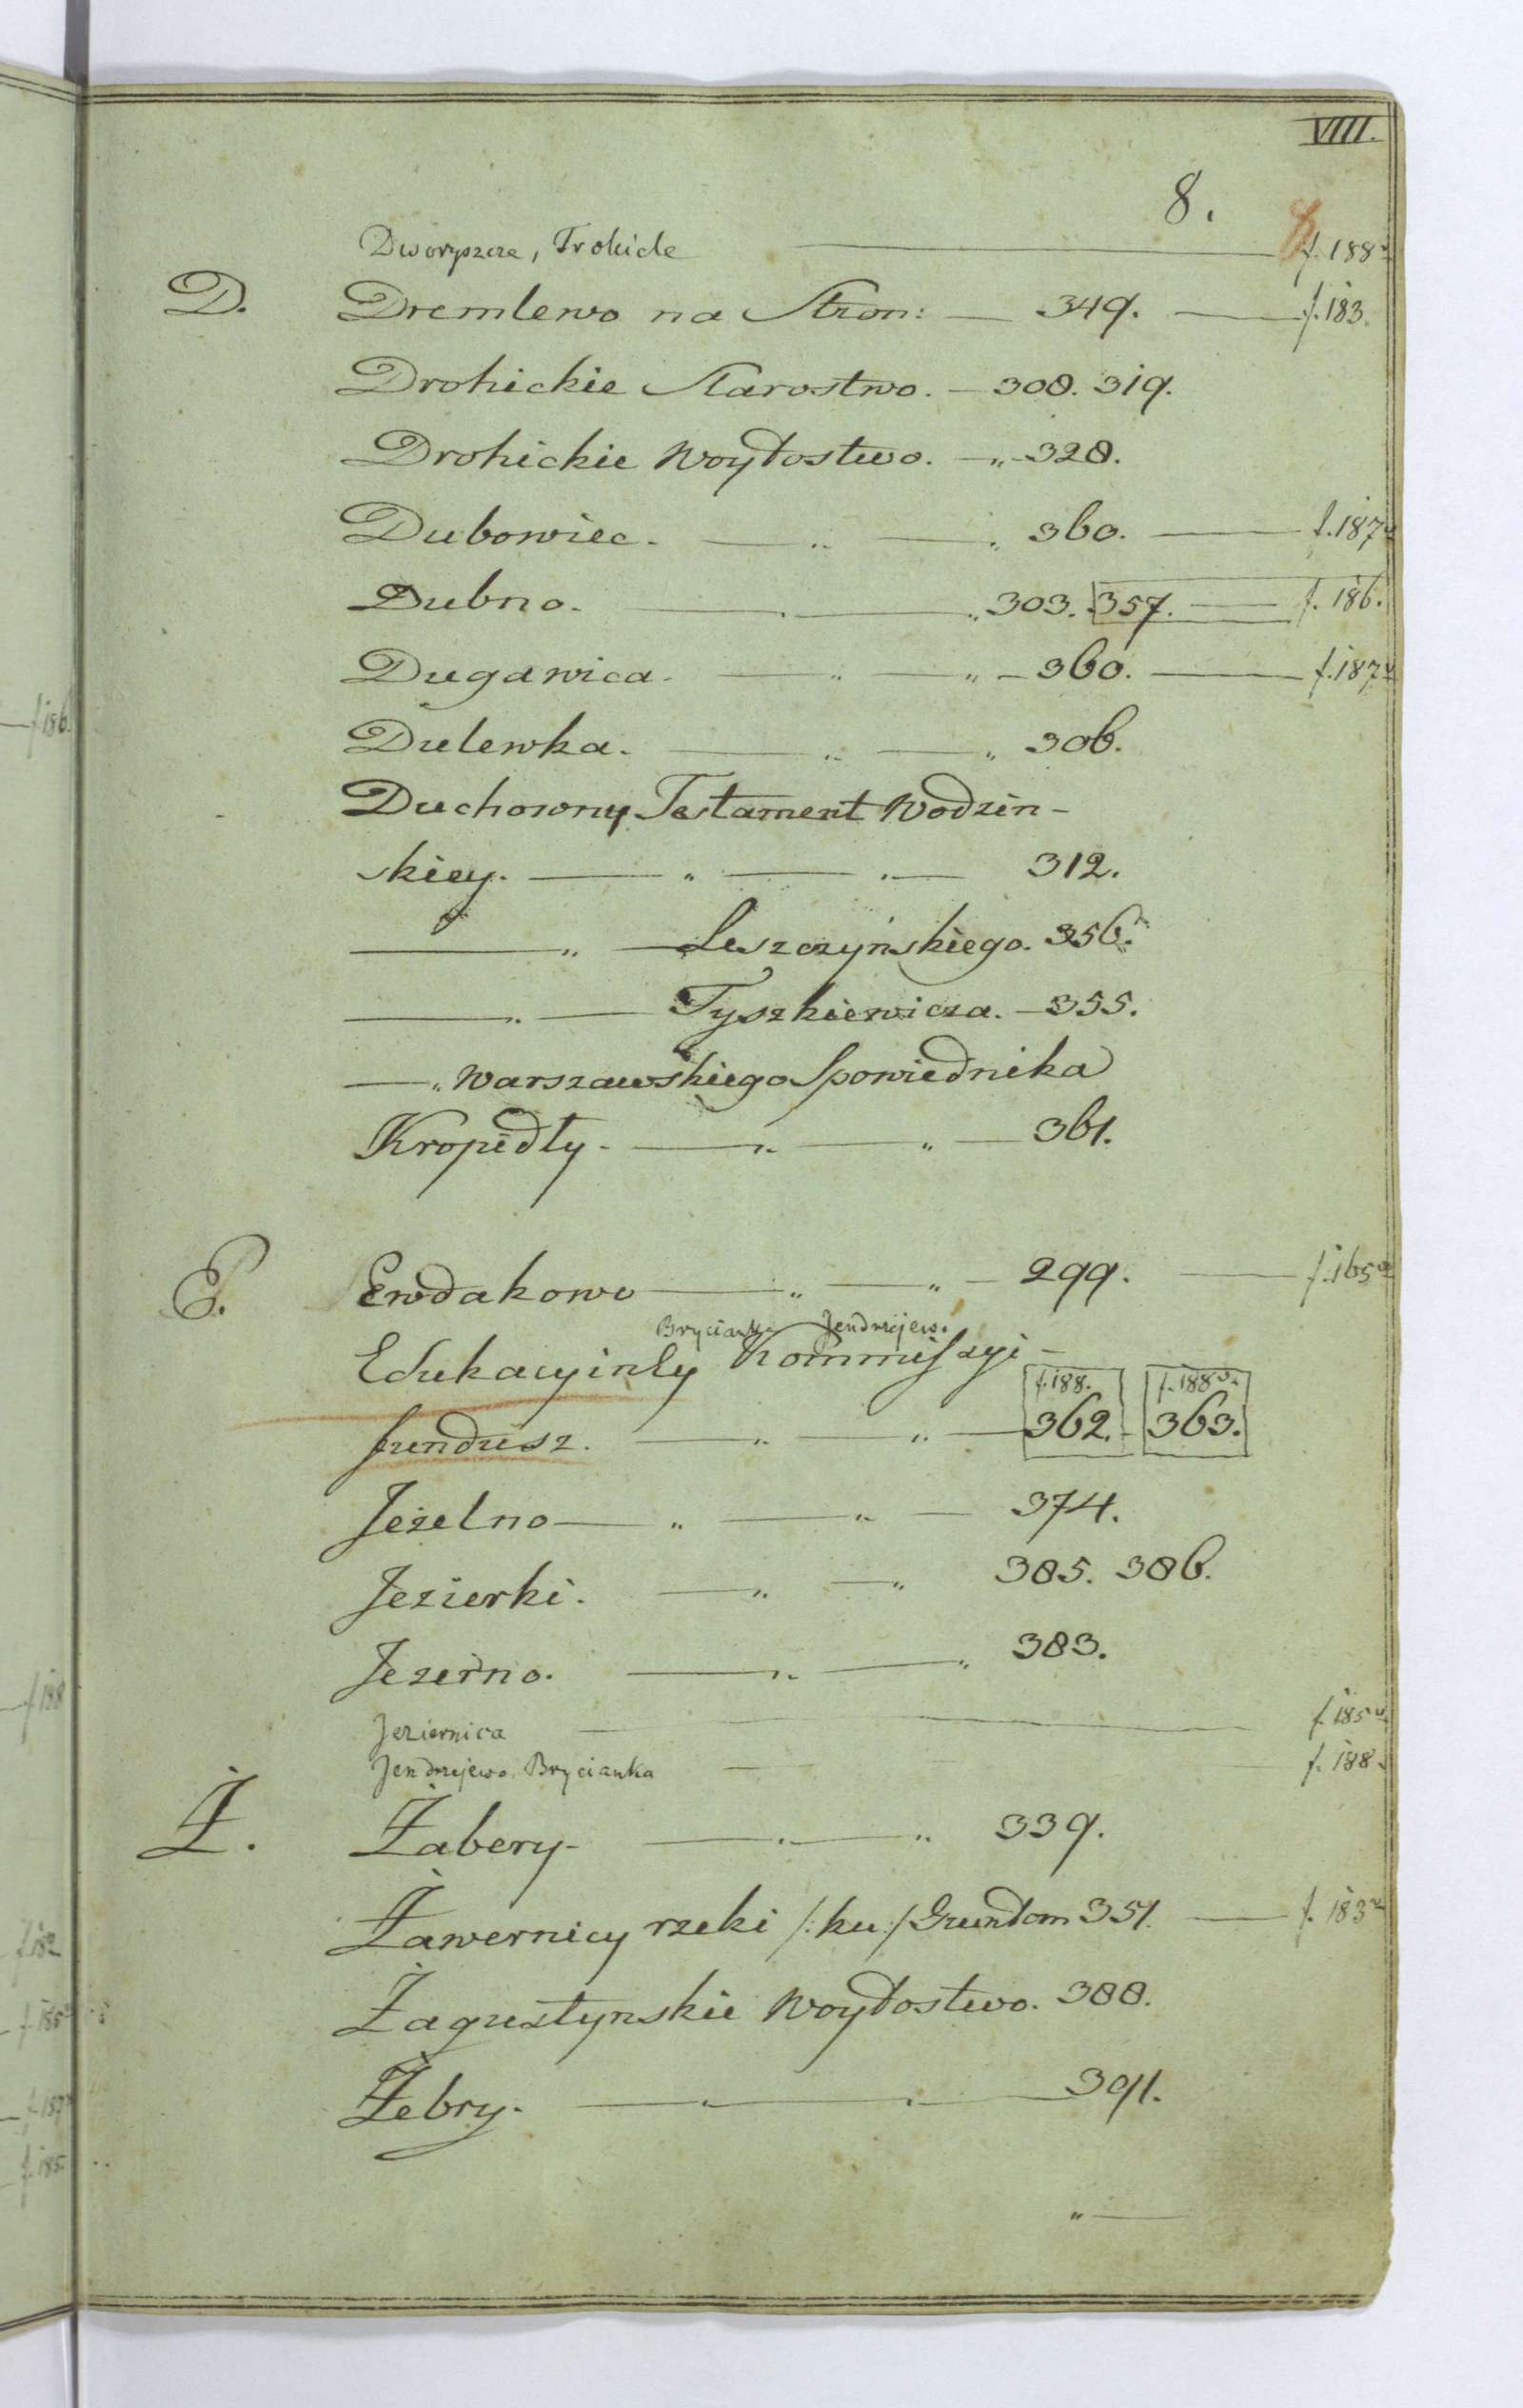 VIIII.
8.
Dworyszcze, Trohicle — f. 188v
D. Dremlewo na Stron: — 349. — f. 183.
Drohickie Starostwo. — 308. 319.
Drohickie Woytostwo. — „ — 328.
Dubowiec. — „ — „ 360. — f. 187v
Dubno. — „ — „ 303. 357. — f. 186.
Dugawica. — „ — „ — 360. — f. 187v
Dulewka. — „ — „ 306.
Duchowny Testament Wodzin-
skiey. — „ — „ — 312.
— „ — Leszczyńskiego. 356.
— „ — Tyszkiewicza. — 355.
— „ Warszawskiego Spowiednika
Kropidły. — „ — „ — 361.
E. Ewdakowo — „ — „ — 299. — f. 165v
Brycianka Jendrzejewo
Edukacyinly Kommiszyi -
f. 188. f. 188v.
fundusz. — „ — „ — 362. - 363.
Jeżelno — „ — „ — 374.
Jezierki. — „ — „ 385. 386.
Jezerno. — „ — „ 383.
Jeziernica — f. 185v
Jendrzejewo, Brycianka — f. 188.
Ż. Żabery. — „ — „ 339.
Żawernicy rzeki /: ku :/ Gruntom 351. — f. 183v
Żagustynskie Woytostwo. 388.
Żebry. — „ — „ — 391.
„ —